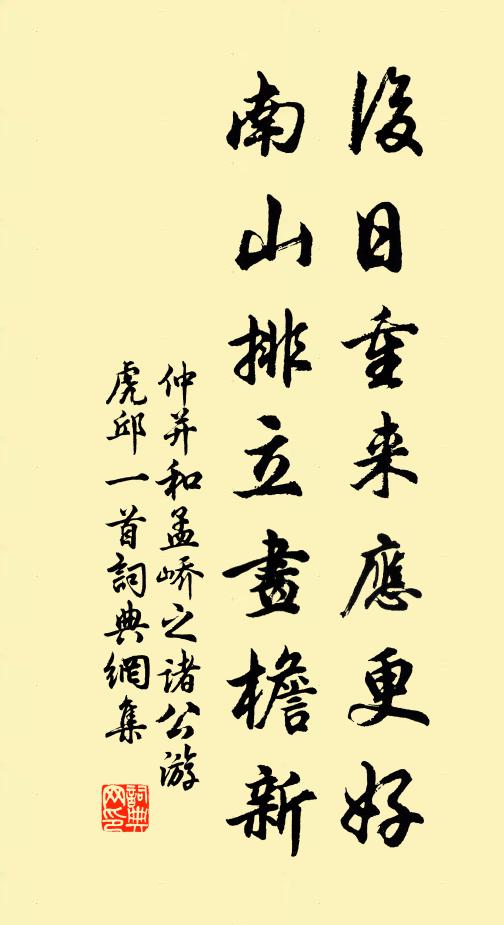 後日重来應更好
南山排立畫檐新
仲并和孟嶠之諸公游
虎邱一首詞典網集
詞典
网印